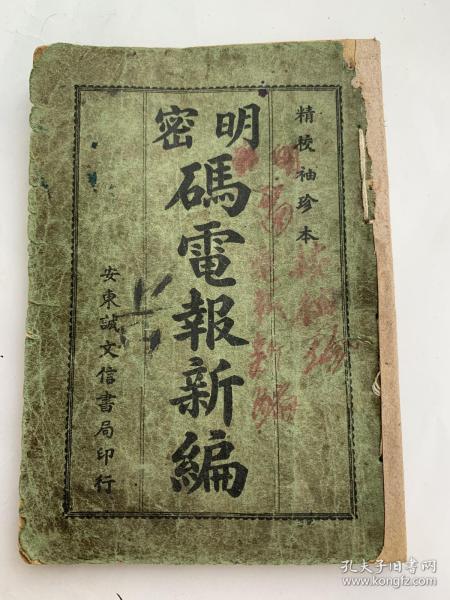 精校袖珍本
明密
碼電報新編
安東誠文信書局印行
孔夫子旧书网
www.kongfz.com